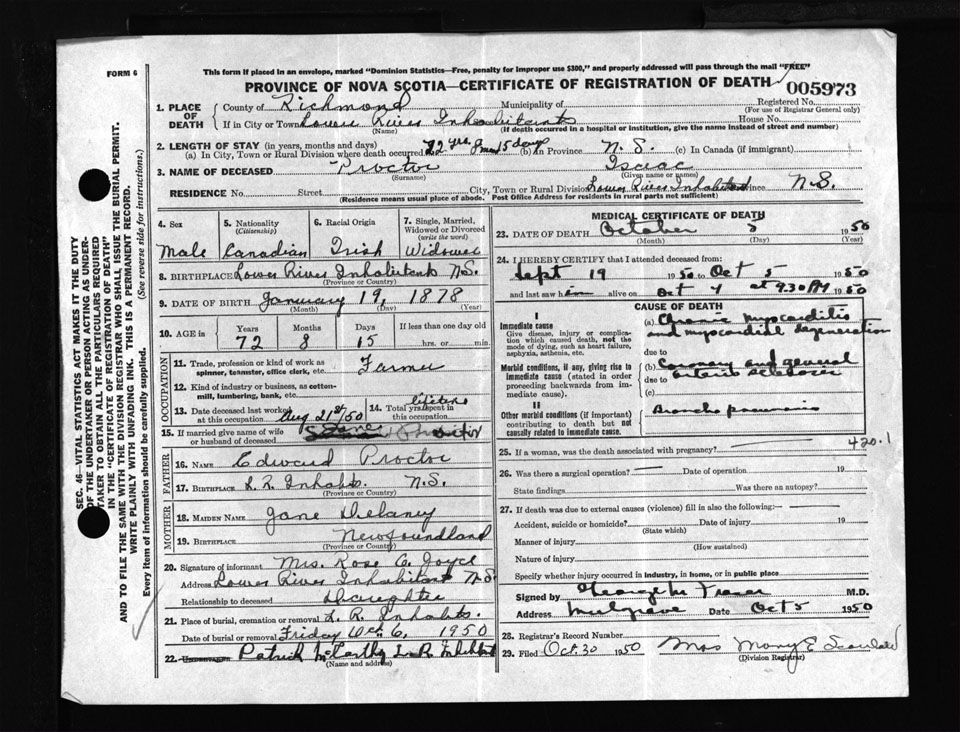 FORM 6
This form if placed in an envelope, marked "Dominion Statistics—Free, penalty for improper use $300," and properly addressed will pass through the mail "FREE"
PROVINCE OF NOVA SCOTIA—CERTIFICATE OF REGISTRATION OF DEATH
005973
1. PLACE OF DEATH
County of Richmond Municipality of Registered No.
(For use of Registrar General only)
If in City or Town Lower River Inhabitants House No.
(Name) (If death occurred in a hospital or institution, give the name instead of street and number)
2. LENGTH OF STAY (in years, months and days)
(a) In City, Town or Rural Division where death occurred 72 yrs. 8 mos 15 days (b) In Province N.S. (c) In Canada (if immigrant)
3. NAME OF DECEASED Proctor Isaac
(Surname) (Given name or names)
RESIDENCE No. Street City, Town or Rural Division Lower River Inhabitants Province N.S.
(Residence means usual place of abode. Post Office Address for residents in rural parts not sufficient)
4. Sex Male
5. Nationality (Citizenship) Canadian
6. Racial Origin Irish
7. Single, Married, Widowed or Divorced (write the word) Widower
8. BIRTHPLACE Lower River Inhabitants N.S.
(Province or Country)
9. DATE OF BIRTH January 19, 1878
(Month) (Day) (Year)
10. AGE in Years Months Days If less than one day old
72 8 15 hrs. or min.
OCCUPATION
11. Trade, profession or kind of work as spinner, teamster, office clerk, etc. Farmer
12. Kind of industry or business, as cotton-mill, lumbering, bank, etc.
13. Date deceased last worked at this occupation Aug 21st/50
14. Total yrs. spent in this occupation lifetime
15. If married give name of wife or husband of deceased Jane Proctor
FATHER
16. NAME Edward Proctor
17. BIRTHPLACE L. R. Inhabts. N.S.
(Province or Country)
MOTHER
18. MAIDEN NAME Jane Delaney
19. BIRTHPLACE Newfoundland
(Province or Country)
20. Signature of informant Mrs. Rose C. Joyce
Address Lower River Inhabitants N.S.
Relationship to deceased Daughter
21. Place of burial, cremation or removal L. R. Inhabts.
Date of burial or removal Friday Oct. 6, 1950
22. UNDERTAKER Patrick McCarthy L. R. Inhabitants
(Name and address)
MEDICAL CERTIFICATE OF DEATH
23. DATE OF DEATH October 5 1950
(Month) (Day) (Year)
24. I HEREBY CERTIFY that I attended deceased from:
Sept 19 1950 to Oct 5 1950
and last saw him alive on Oct 4 at 9.30 PM 1950
CAUSE OF DEATH
I
Immediate cause
Give disease, injury or complication which caused death, not the mode of dying, such as heart failure, asphyxia, asthenia, etc.
(a) Chronic myocarditis and myocardial degeneration
due to
Morbid conditions, if any, giving rise to immediate cause (stated in order proceeding backwards from immediate cause).
(b) Coronary and general arterio sclerosis
due to
(c)
II
Other morbid conditions (if important) contributing to death but not causally related to immediate cause.
Broncho pneumonia
420.1
25. If a woman, was the death associated with pregnancy?
26. Was there a surgical operation? Date of operation 19
State findings Was there an autopsy?
27. If death was due to external causes (violence) fill in also the following:—
Accident, suicide or homicide? Date of injury 19
(State which)
Manner of injury
(How sustained)
Nature of injury
Specify whether injury occurred in industry, in home, or in public place
Signed by George M Fraser M.D.
Address Mulgrave Date Oct 5 1950
28. Registrar's Record Number
29. Filed Oct. 30 1950 Mrs Mary E
(Division Registrar)
SEC. 46—VITAL STATISTICS ACT MAKES IT THE DUTY
OF THE UNDERTAKER OR PERSON ACTING AS UNDER-
TAKER TO OBTAIN ALL THE PARTICULARS REQUIRED
IN THE "CERTIFICATE OF REGISTRATION OF DEATH"
AND TO FILE THE SAME WITH THE DIVISION REGISTRAR WHO SHALL ISSUE THE BURIAL PERMIT.
WRITE PLAINLY WITH UNFADING INK. THIS IS A PERMANENT RECORD.
Every item of information should be carefully supplied. (See reverse side for instructions.)